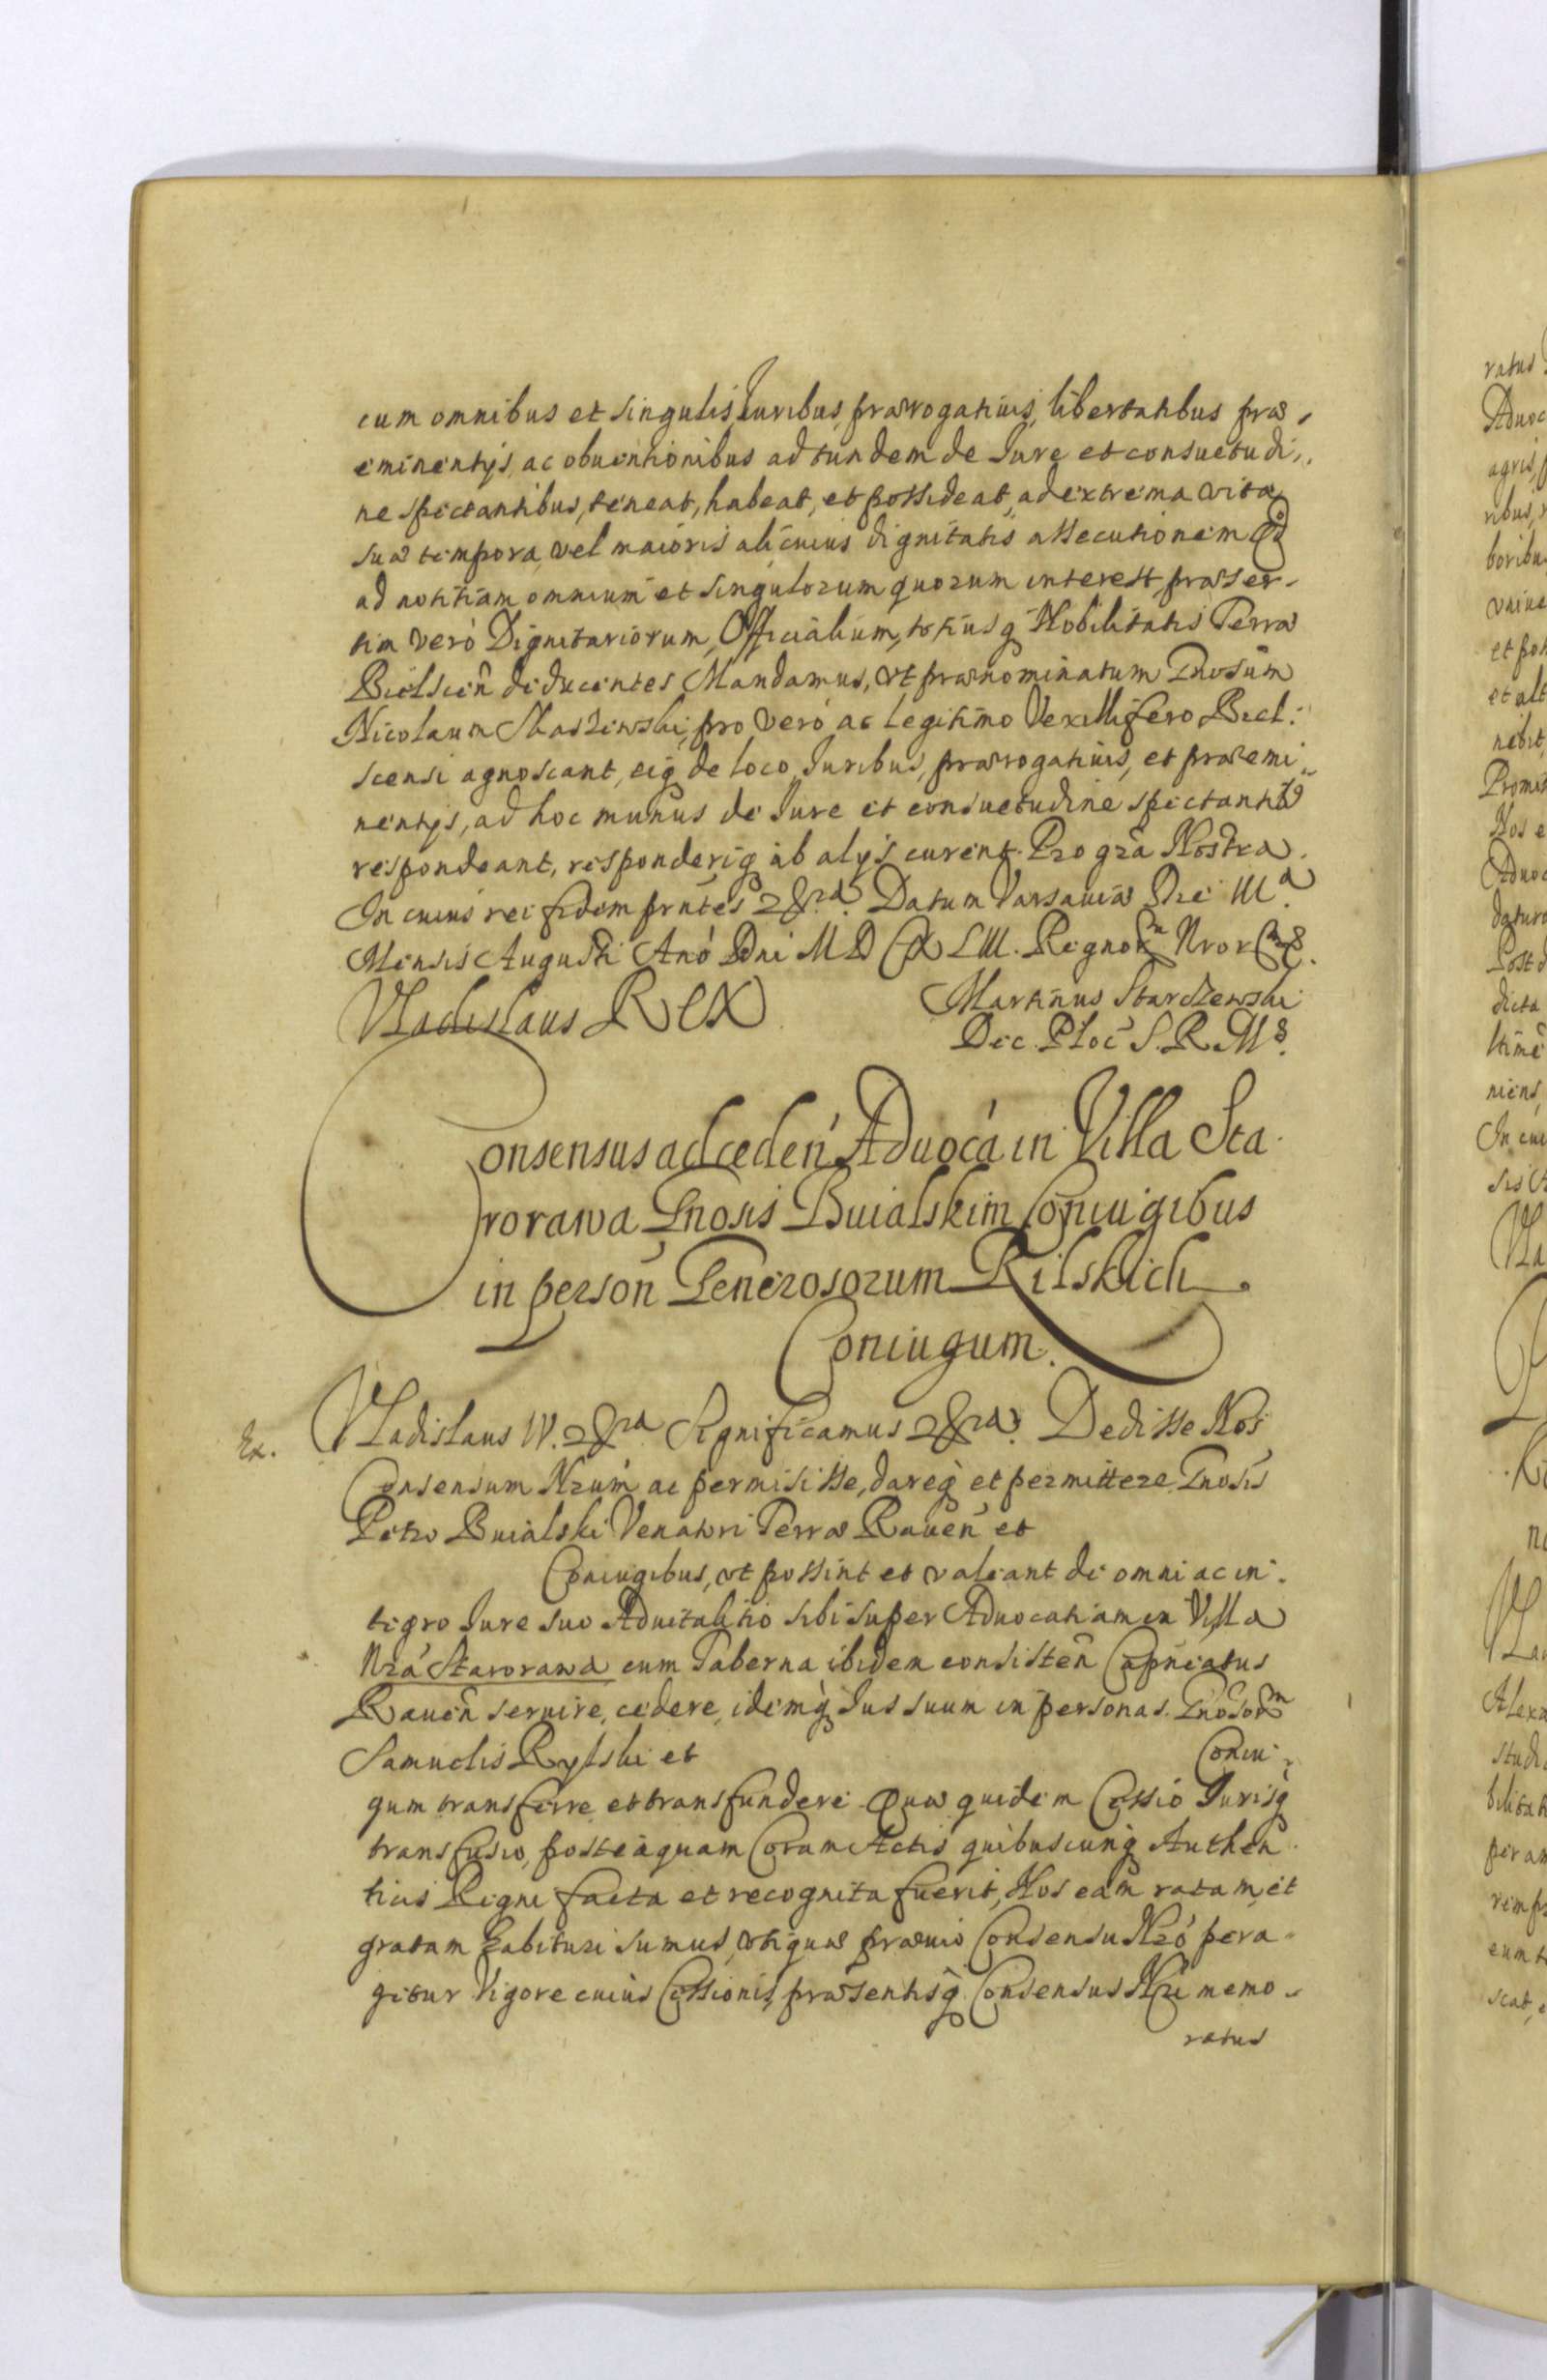 cum omnibus et singulis Iuribus, prærogatiuis, libertatibus præ-
eminentÿs, ac obuentionibus ad eundem de Iure et consuetudi-
ne spectantibus, teneat, habeat, et possideat, ad extrema vitæ
suæ tempora, vel maioris alicuius dignitatis assecutionem Qd
ad notitiam omnium et singulorum quorum interest, præser-
tim verò Dignitariorum, Officialium, totiusq Nobilitatis Terræ
Bielscen̄ deducentes Mandamus, vt prænominatum Gnosum
Nicolaum Skaszewski, pro verò ac legitimo Vexillifero Biel-
scensi agnoscant, eiq de loco, Iuribus, prærogatiuis, et præemi-
nentÿs, ad hoc munus de Iure et consuetudine spectantib9
respondeant, responderiq ab alÿs curent. Pro gra Nostra.
In cuius rei fidem prntes &ra. Datum Varsauiæ Die IIIa.
Mensis Augusti Anō Dni M D CXLIII. Regnorum Nrorum &.
Vladislaus REX
Martinus Starczewski
Dec. Ploc̄ S. R. Mis.
Consensus ad ceden̄ Aduocā in Villa Sta-
rorawa Gnosis Buialskim Coniugibus
in person̄ Generosorum Rilskich
Coniugum.
Ex.
Vladislaus IV. &ra Significamus &ra. Dedisse Nos
Consensum Nrum ac permisisse, dareq et permittere Gnosis
Petro Buialski Venatori Terræ Rauen̄ et
Coniugibus, vt possint et valeant de omni ac in-
tegro Iure suo Aduitalitio sibi super Aduocatiam in Villa
Nrā Starorawa cum Taberna ibidem consisten̄ Capneatus
Rauen̄ seruire, cedere, idemq Ius suum in personas Gnosorum
Samuelis Rylski et
Coniu-
gum transferre et transfundere Quæ quidem Cessio Iurisq
transfusio, posteaquam Coram Actis quibuscunq Authen-
ticis Regni facta et recognita fuerit, Nos eam ratam et
gratam habituri sumus, vtiquæ præuio Consensu Nrō pera-
gitur Vigore cuius Cessionis, præsentisq Consensus Nri memo-
ratus